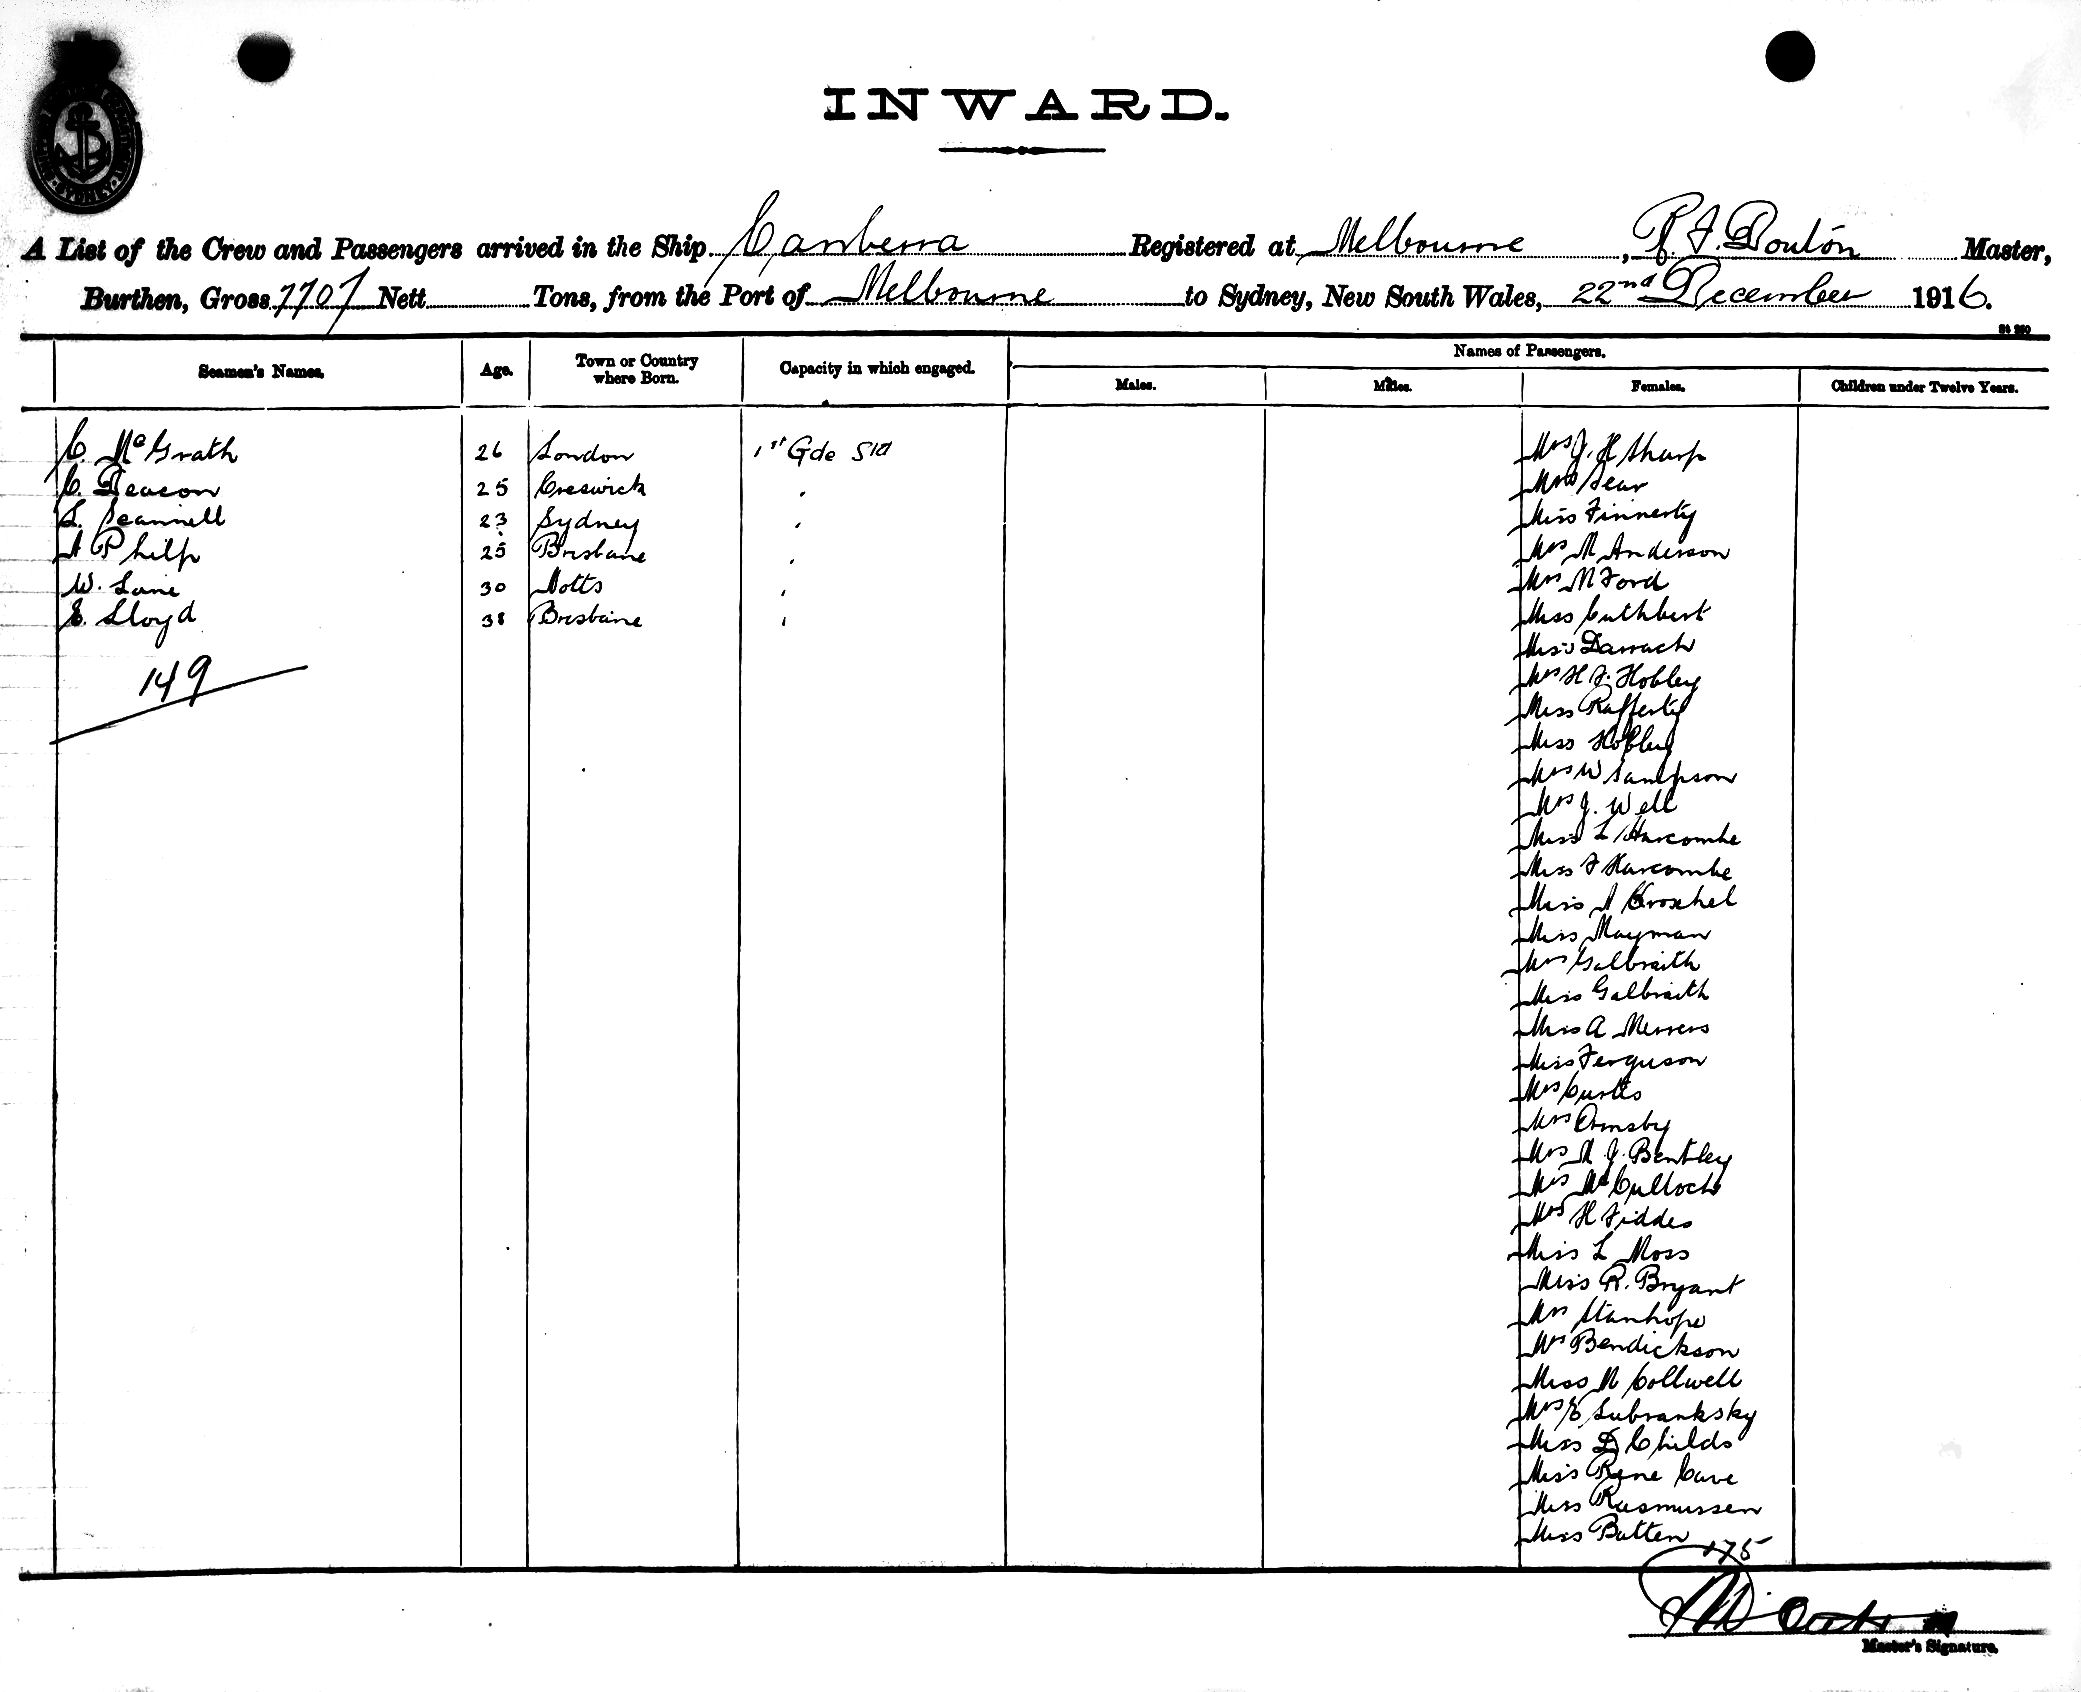 INWARD.
A List of the Crew and Passengers arrived in the Ship Canberra Registered at Melbourne, R. J. Doulon Master,
Burthen, Gross 7707 Nett Tons, from the Port of Melbourne to Sydney, New South Wales, 22nd December 1916.
Names of Passengers.
Seamen's Names. Age. Town or Country where Born. Capacity in which engaged. Males. Males. Females. Children under Twelve Years.
C. McGrath 26 London 1st Gde Std Mrs J. H Sharp
C. Deacon 25 Creswick Mrs Sear
L. Scannell 23 Sydney Miss Finnerty
A Philp 25 Brisbane Mrs M Anderson
W. Lane 30 Notts Mrs M Ford
E. Lloyd 38 Brisbane Miss Cuthbert
Miss Darrach
149 Mrs H J. Hobley
Miss Rafferty
Miss Hobley
Mrs W Sampson
Mrs J. Well
Miss L Harcombe
Miss F Harcombe
Miss A
Miss Mayman
Mrs Galbraith
Miss Galbraith
Miss A Merrers
Miss Ferguson
Mrs Curtis
Mrs Ormsby
Mrs M J. Bentley
Mrs McCulloch
Mrs H Fiddes
Miss L Moss
Miss R. Bryant
Mrs Stanhope
Mrs Bendickson
Miss M Collwell
Mrs E Lubranksky
Miss D Childs
Miss Rene Cave
Miss Rasmussen
Miss Batten
175
Master's Signature.